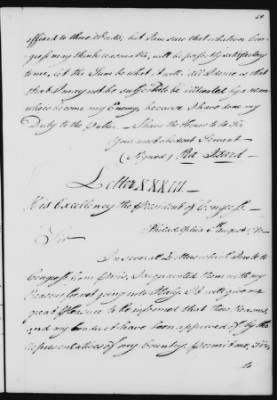 69
affixed to those Words, but I am sure that whatever Con-
gress may think reasonable, will be perfectly satisfactory
to me, let the Sum be what it will. All I desire is that
that I may not be suffered to be intimidated by a man
who became my Enemy, because I have done my
Duty to the Public. I have the Honor to be Sir
Your most obedient Servant
(Signed) Ra. Izard
Letter XXXIII.
His Excellency the President of Congress.
Philadelphia August
Sir
In several Letters which I wrote to
Congress from Paris, I acquainted them with my
reasons for not going into Italy. It will give me
great pleasure to be informed that those Reasons,
and my conduct have been approved of by the
representatives of my Country. Permit me, Sir,
to